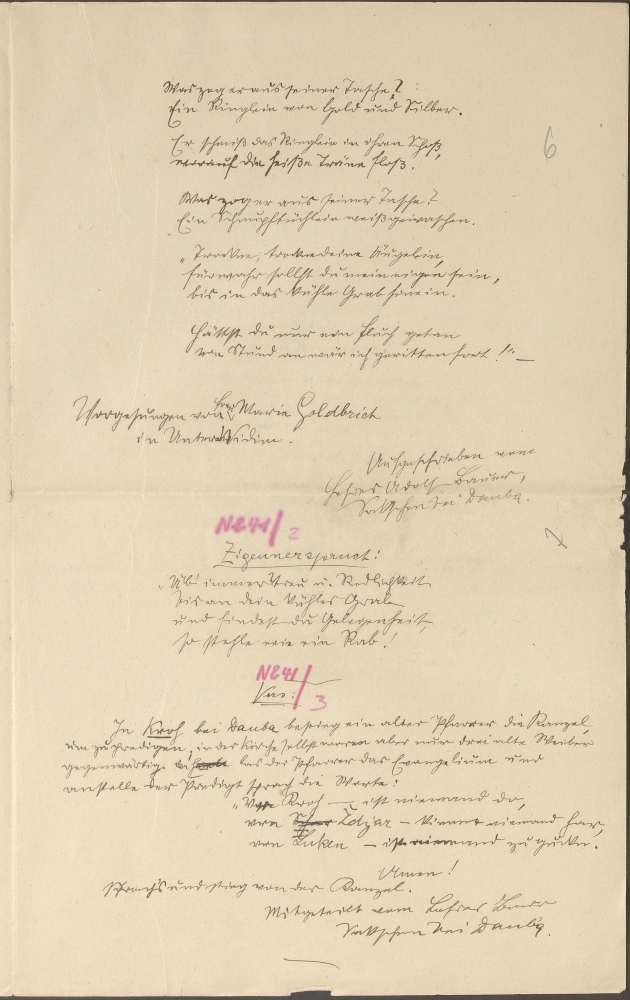 Was zog er aus seiner Tasche?
Ein Ringlein von Gold und Silber.
Er schmiß das Ringlein in ihren Schoß,
worauf die heiße Träne floß.
6
Was zog er aus seiner Tasche?
Ein Schnupftüchlein weiß gewaschen.
„Trockne, trockne deine Äugelein,
fürwahr sollst du mein eigen sein,
bis in das kühle Grab hinein.
Hättst du nur ein Fluch getan
von Stund an wär ich geritten fort!" —
Vorgesungen von Maria Goldbrich
in
Aufgeschrieben vom
Lehrer Adolf Bauer,
bei Dauba.
N841/2
Zigeunerspruch:
„Üb' immer Treu u. Redlichkeit
bis an dein kühles Grab
und findest du Gelegenheit,
so stehle wie ein Rab!
N841/3
In Kroh bei Dauba bestieg ein alter Pfarrer die Kanzel,
um zu predigen, in der Kirche selbst waren aber nur drei alte Weiber
gegenwärtig. las der Pfarrer das Evangelium und
anstelle der Predigt sprach die Worte:
„Von Kroh — ist niemand da,
von Zdjar — kommt niemand her,
von Luken — ist niemand zu gucken.
Amen!
Sprach's und stieg von der Kanzel.
Mitgeteilt vom Lehrer Bauer
bei Dauba.